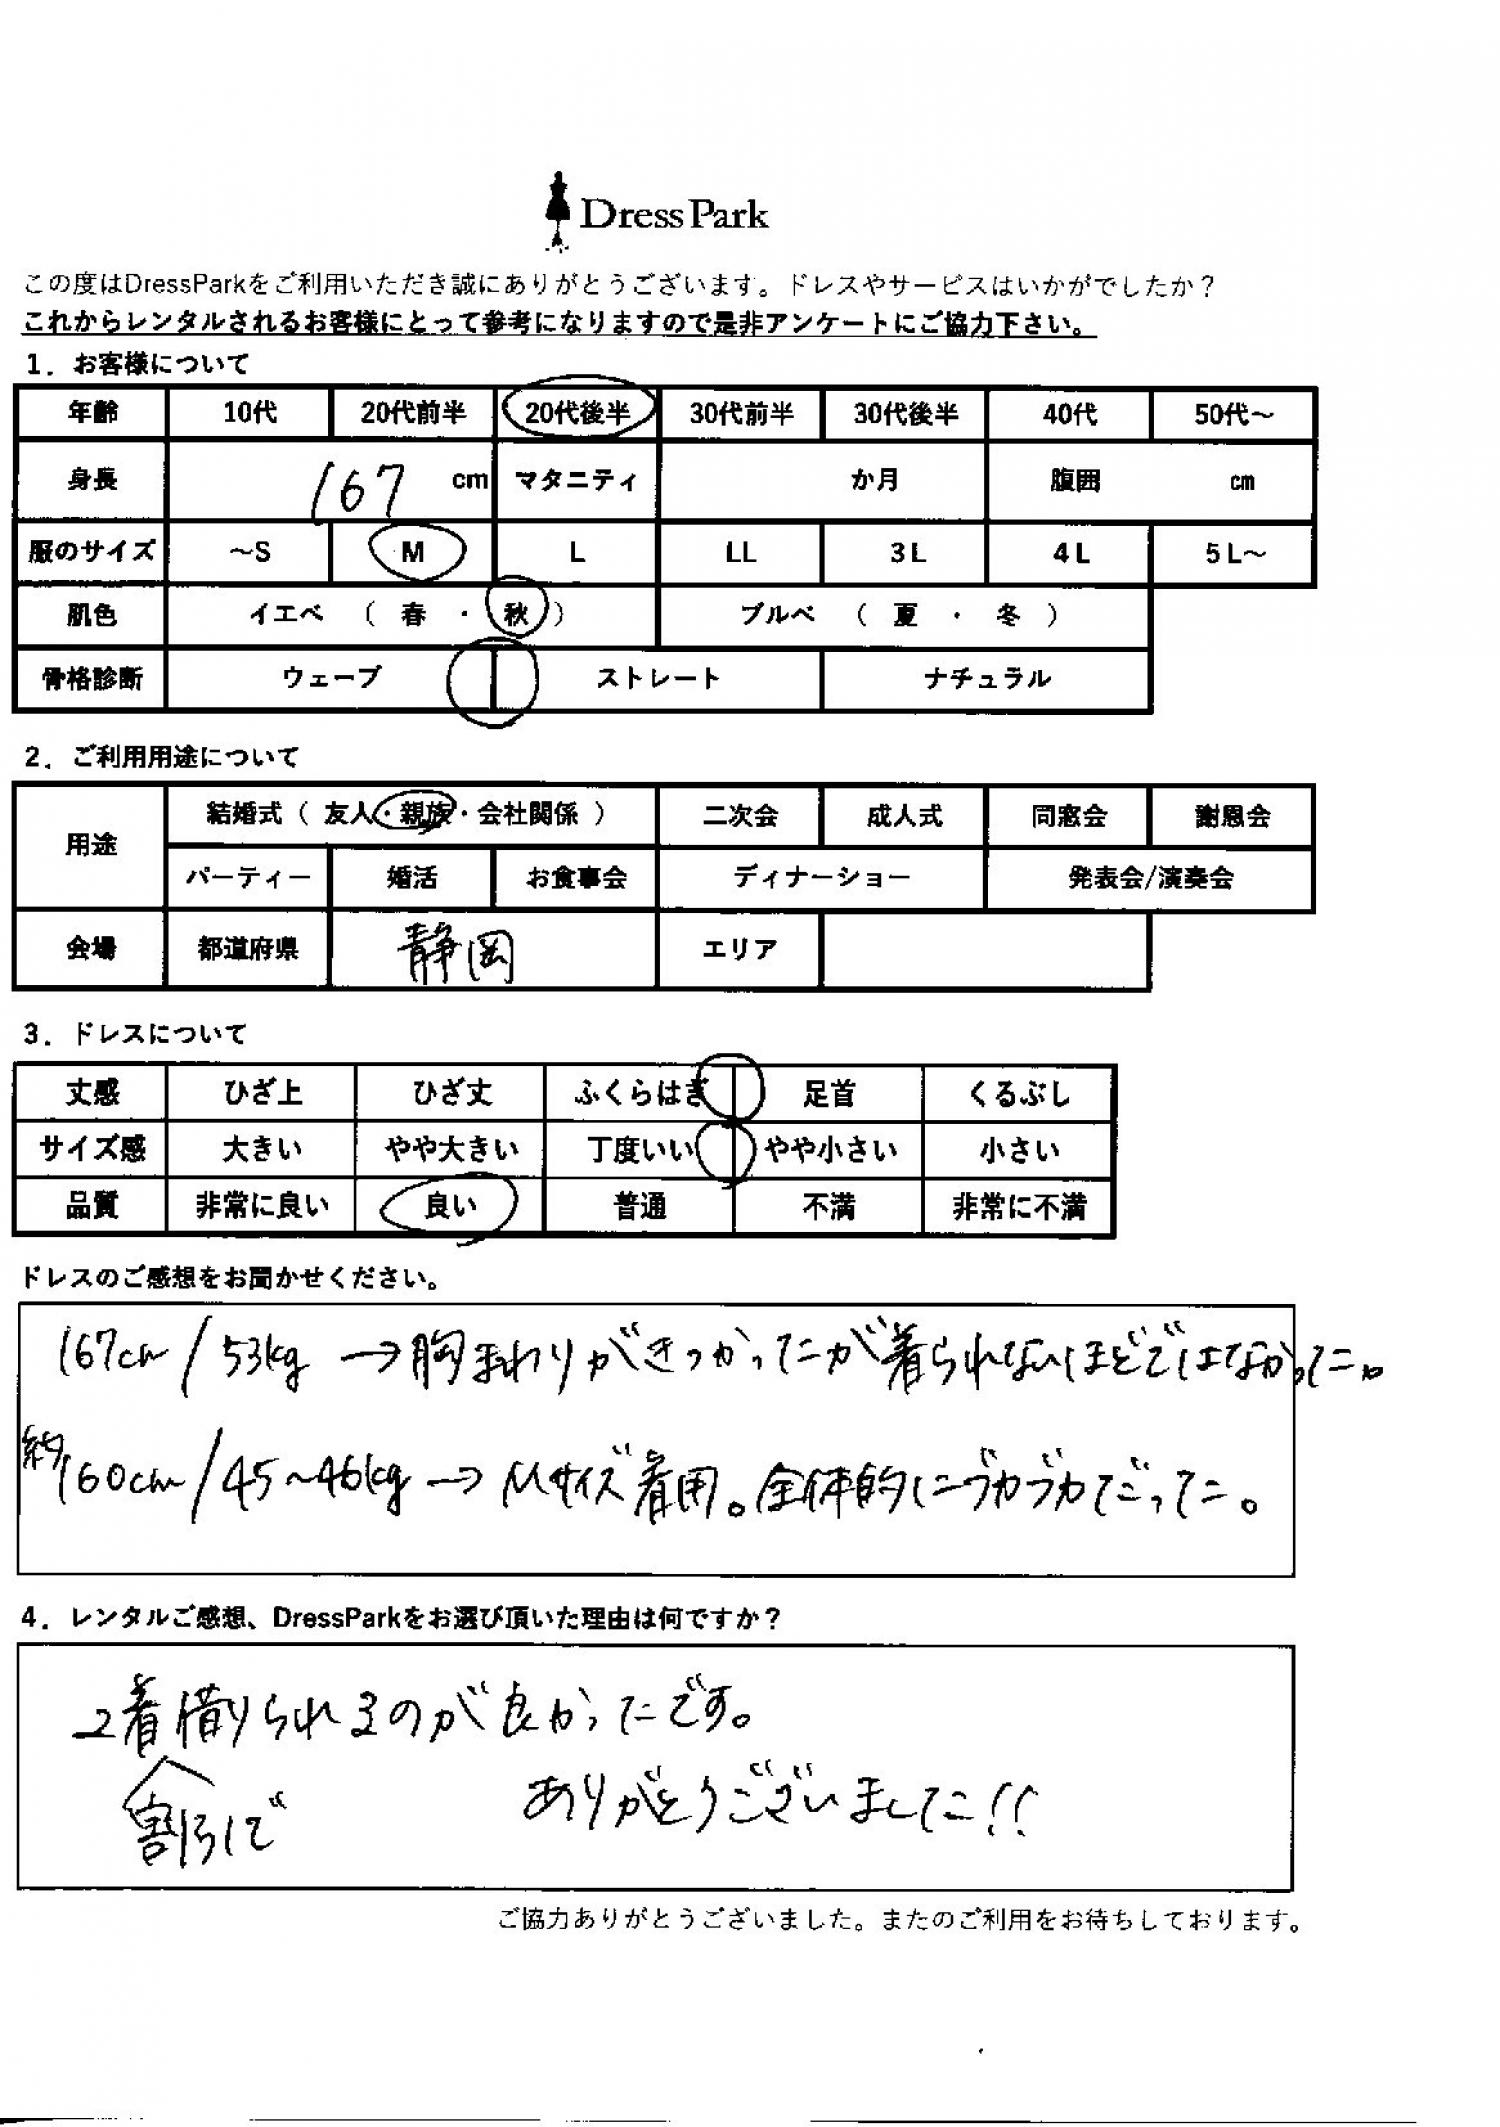 DressPark
この度はDressParkをご利用いただき誠にありがとうございます。ドレスやサービスはいかがでしたか？
これからレンタルされるお客様にとって参考になりますので是非アンケートにご協力下さい。
1．お客様について
年齢 10代 20代前半 20代後半 30代前半 30代後半 40代 50代～
身長 167 cm マタニティ か月 腹囲 cm
服のサイズ ～S M L LL 3L 4L 5L～
肌色 イエベ （ 春 ・ 秋 ） ブルベ （ 夏 ・ 冬 ）
骨格診断 ウェーブ ストレート ナチュラル
2．ご利用用途について
用途 結婚式（ 友人・親族・会社関係 ） 二次会 成人式 同窓会 謝恩会
パーティー 婚活 お食事会 ディナーショー 発表会/演奏会
会場 都道府県 静岡 エリア
3．ドレスについて
丈感 ひざ上 ひざ丈 ふくらはぎ 足首 くるぶし
サイズ感 大きい やや大きい 丁度いい やや小さい 小さい
品質 非常に良い 良い 普通 不満 非常に不満
ドレスのご感想をお聞かせください。
167cm/53kg→胸まわりがきつかったが着られないほどではなかった。
約160cm/45～46kg→Mサイズ着用。全体的にブカブカだった。
4．レンタルご感想、DressParkをお選び頂いた理由は何ですか？
2着借りられるのが良かったです。
割引で ありがとうございました!!
ご協力ありがとうございました。またのご利用をお待ちしております。